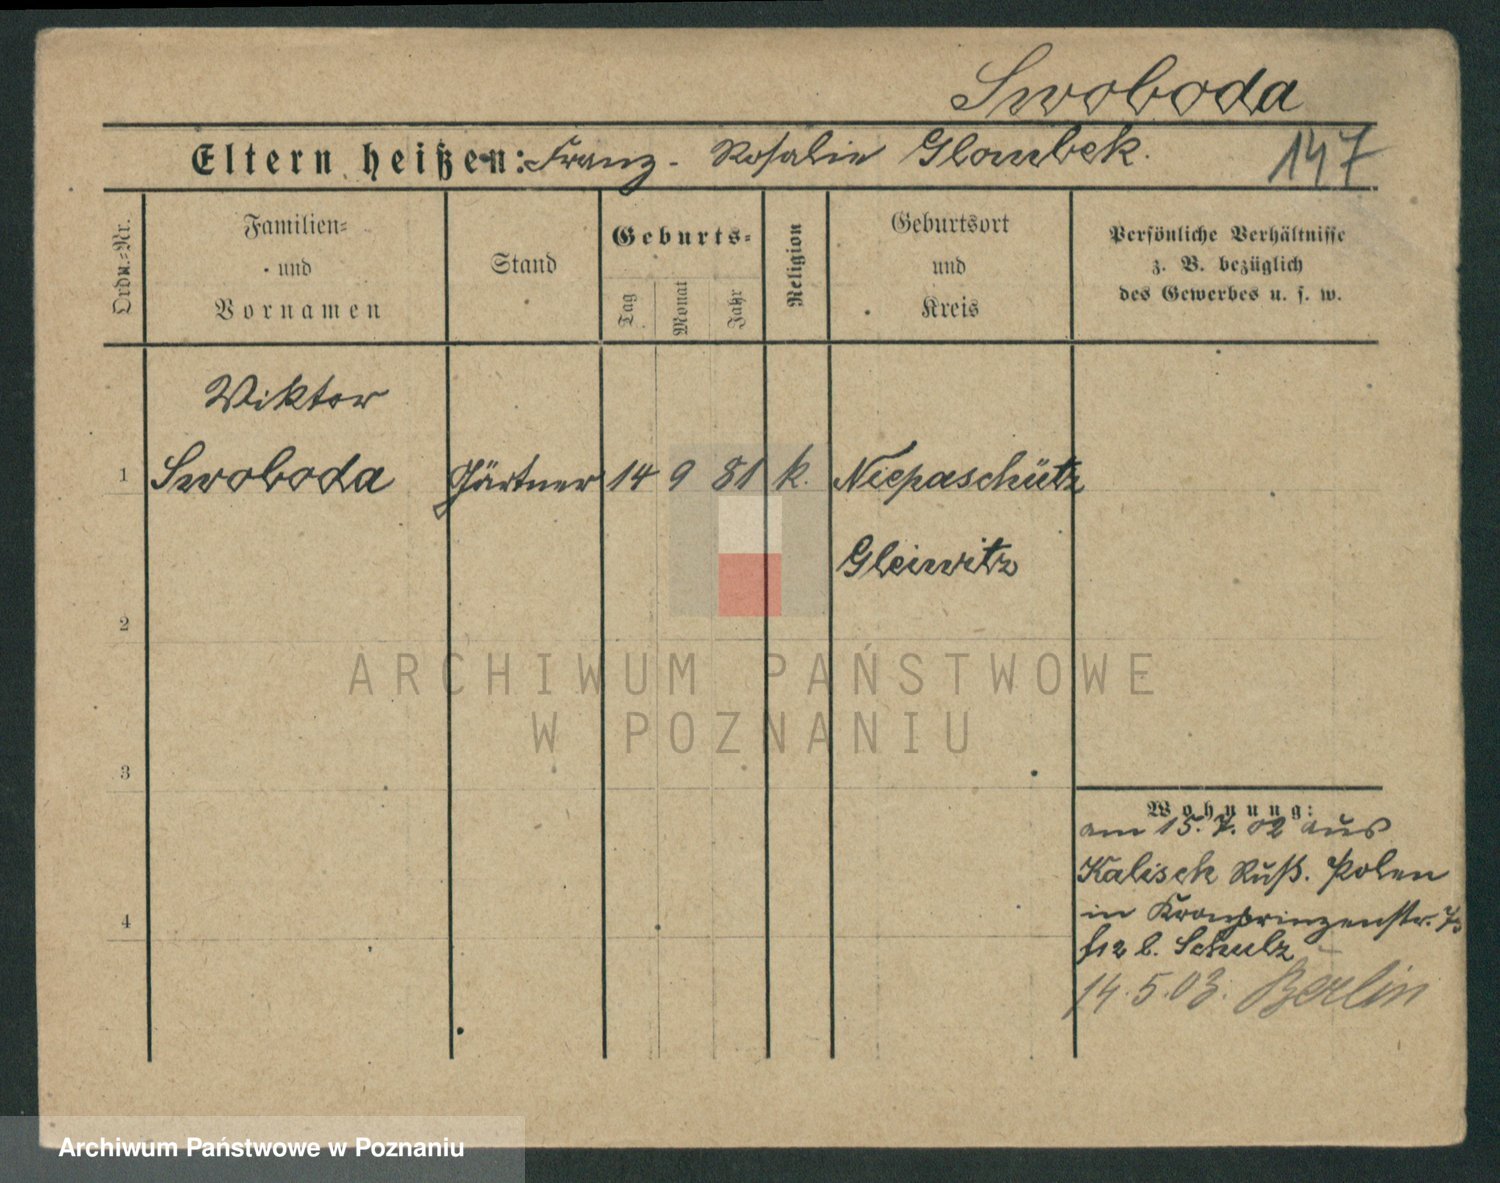 Swoboda
Eltern heißen: Franz - Rosalie Glombek.
147
Ordn.-Nr.
Familien-
und
Vornamen
Stand
Geburts-
Tag
Monat
Jahr
Religion
Geburtsort
und
Kreis
Persönliche Verhältnisse
z. B. bezüglich
des Gewerbes u. s. w.
Viktor
1 Swoboda Gärtner 14 9 81 k. Niepaschütz
Gleiwitz
2
ARCHIWUM PAŃSTWOWE
W POZNANIU
3
Wohnung:
am 15.7.02 aus
Kalisch Ruß. Polen
4
in Kronprinzenstr.
b. Schulz
14.5.03. Berlin
Archiwum Państwowe w Poznaniu